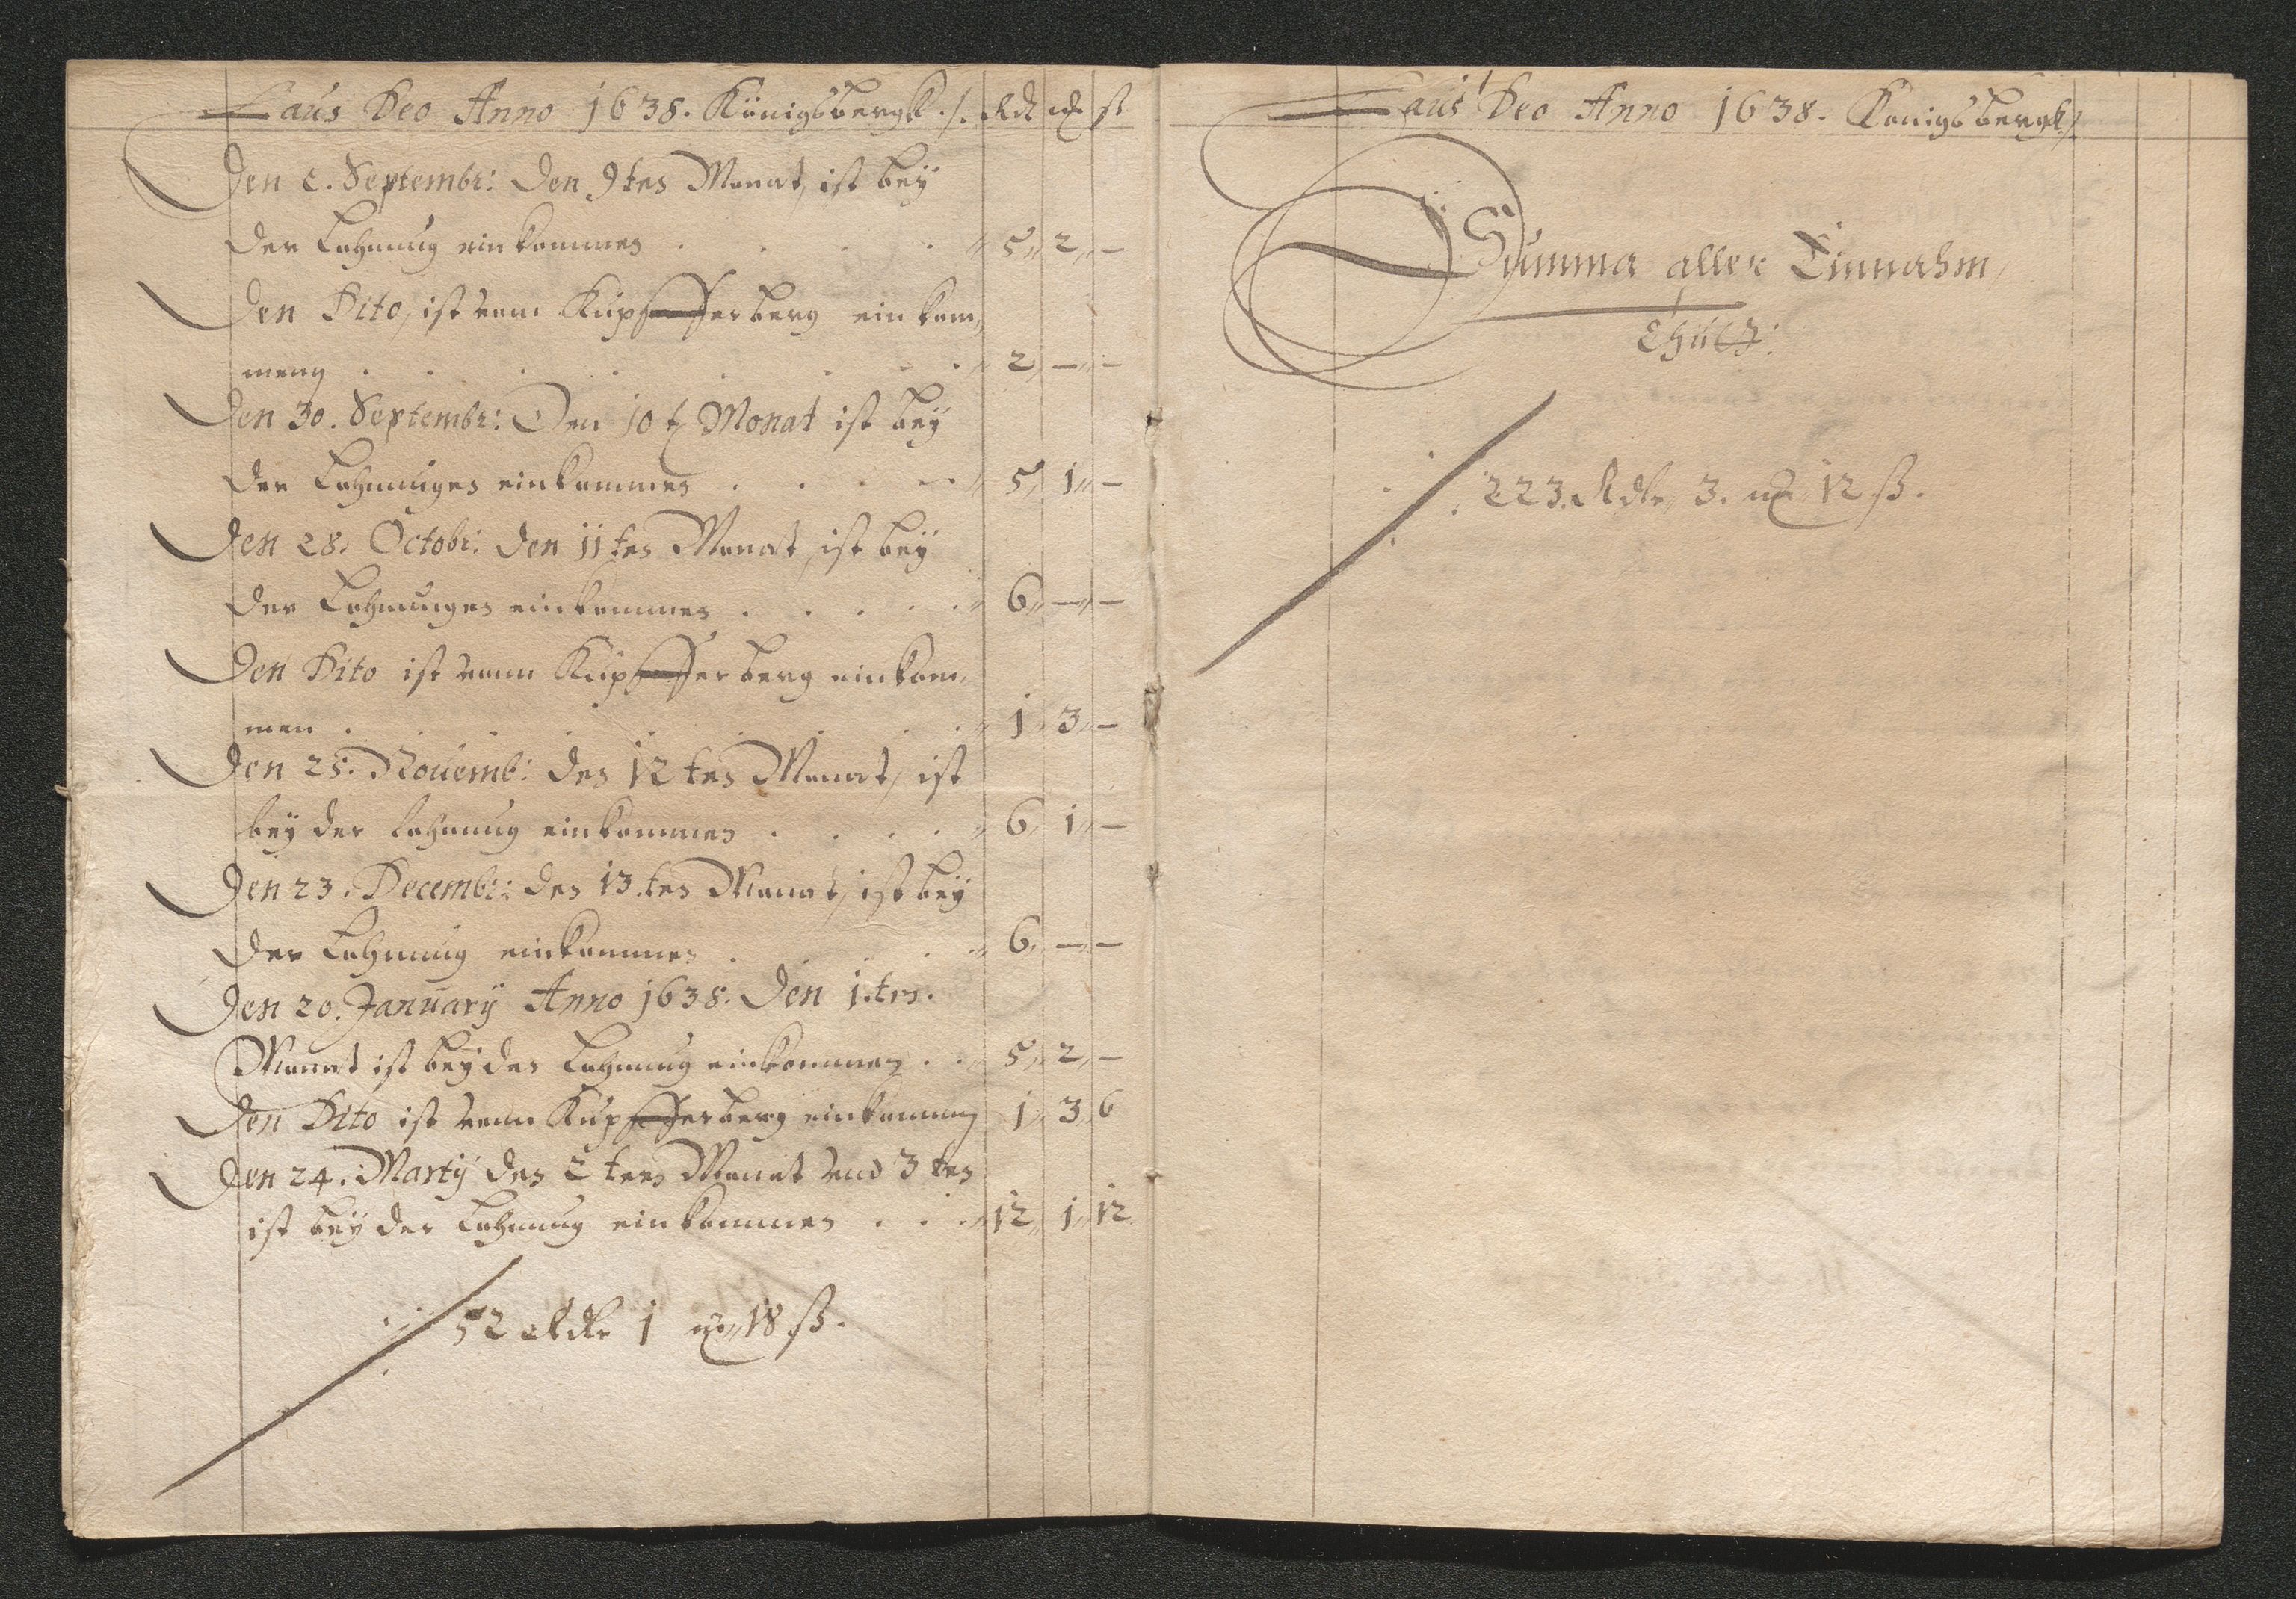 Laus Deo Anno 1638. Königsbergk ./. Rd ß
Den 2. Septembr: Den 9 ten Monat, ist bey
der Lohnung einkommen . . . . 5 „ 2 „ —
Den Dito, ist vom Kupffferberg ein kom„
menn . . . . . . . 2 „ — „ —
Den 30. Septembr: Den 10 t Monat ist bey
der Lohnungen einkommen . . . . 5 „ 1 „ —
Den 28. Octobr: Den 11 ten Monat, ist bey
der Lohnungen einkommen . . . . 6 „ — „ —
Den Dito ist vonn Kupffferberg einkom„
men . . . . . . . 1 „ 3 „ —
Den 25. Nouemb: den 12 ten Monat, ist
bey der Lohnung einkommen . . . . 6 „ 1 „ —
Den 23. Decembr: den 13. ten Monat, ist bey
der Lohnung einkommen . . . . 6 „ — „ —
Den 20. January Anno 1638. Den 1. ten.
Monat ist bey der Lohnung einkommen . . 5 „ 2 „ —
Den Dito ist vonn Kupffferberg einkommen 1 „ 3 „ 6
Den 24. Marty den 2 tenn Monat vnd 3 ten
ist bey der Lohnung einkommen . . . 12 „ 1 „ 12
52 Rdlr 1 „ 18 ß.
Laus Deo Anno 1638. Konigsbergk ./
Summa aller Einnahm„
Thutt:
223. Rdlr„ 3. „ 12 ß.